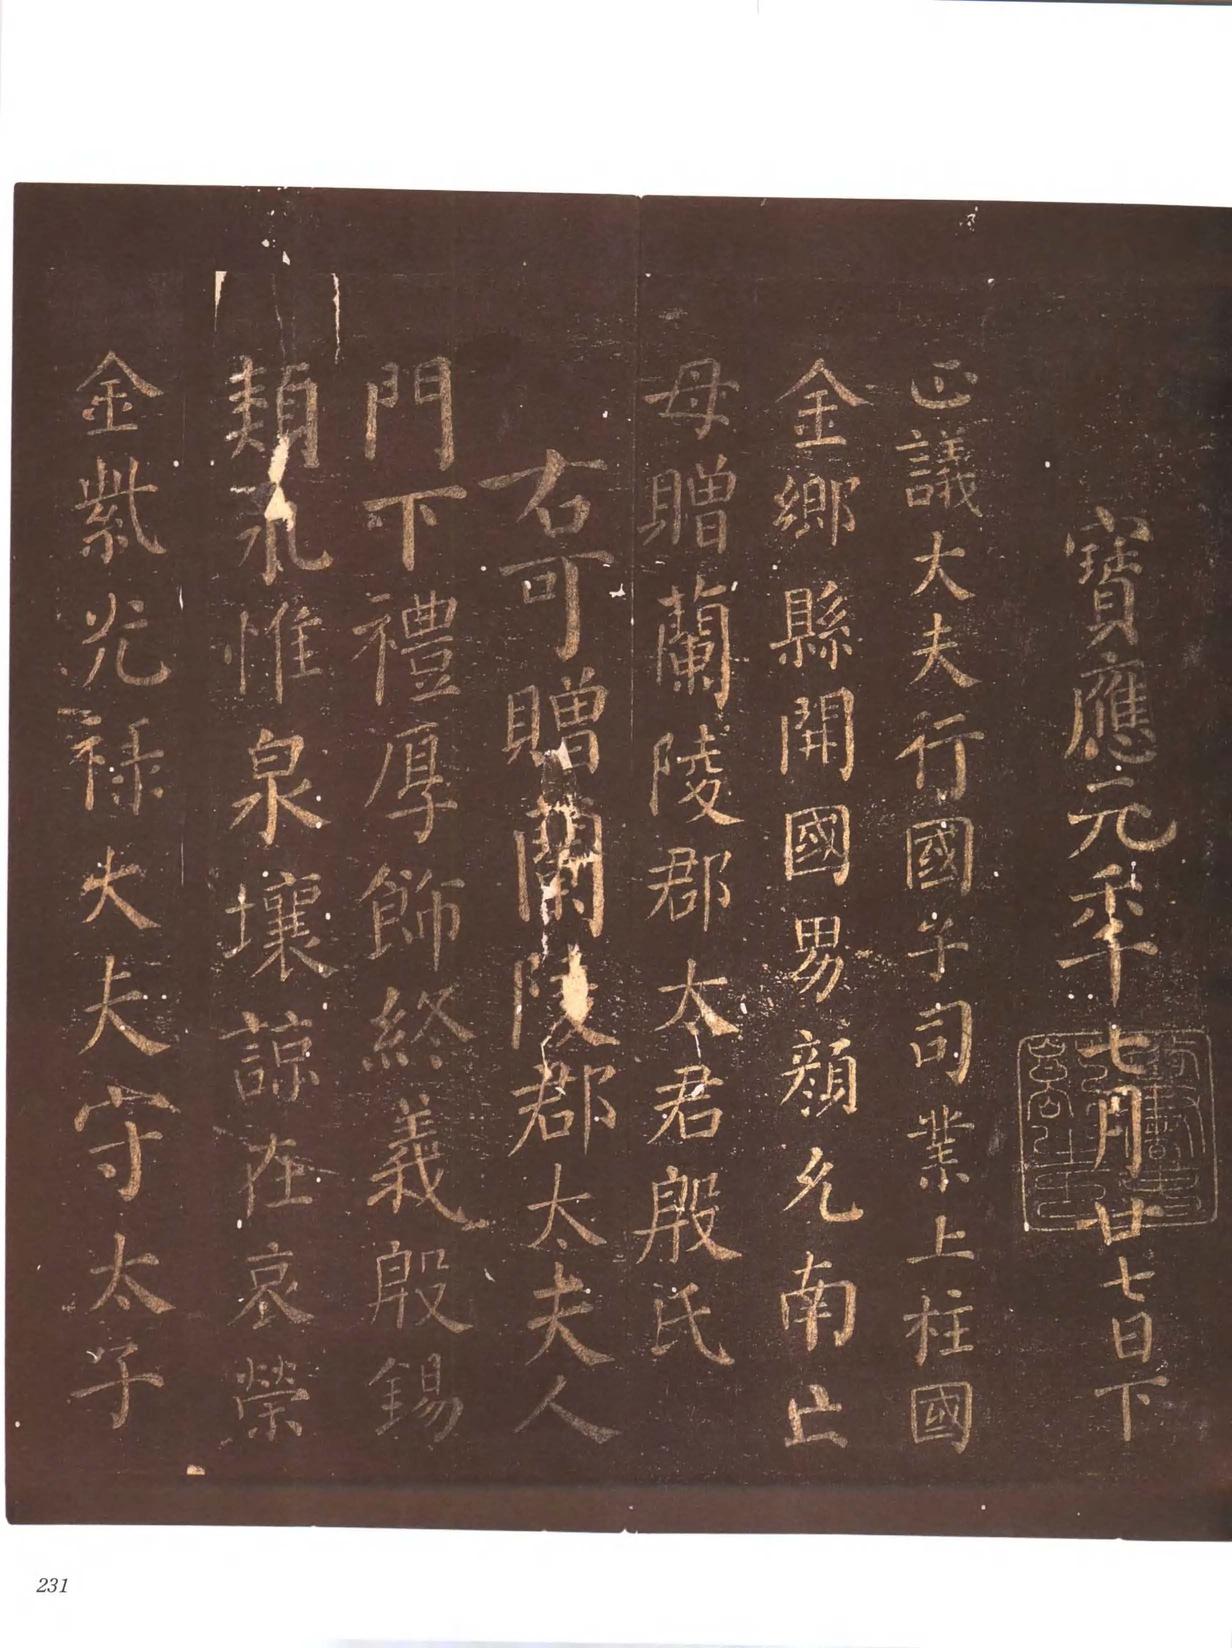 寶應元秊七月廿七日下
正議大夫行國子司業上柱國
金鄉縣開國男顔允南亡
母贈蘭陵郡太君殷氏
右可贈蘭陵郡太夫人
門下禮厚飾終義殷錫
類永惟泉壤諒在哀榮
金紫光禄大夫守太子
231